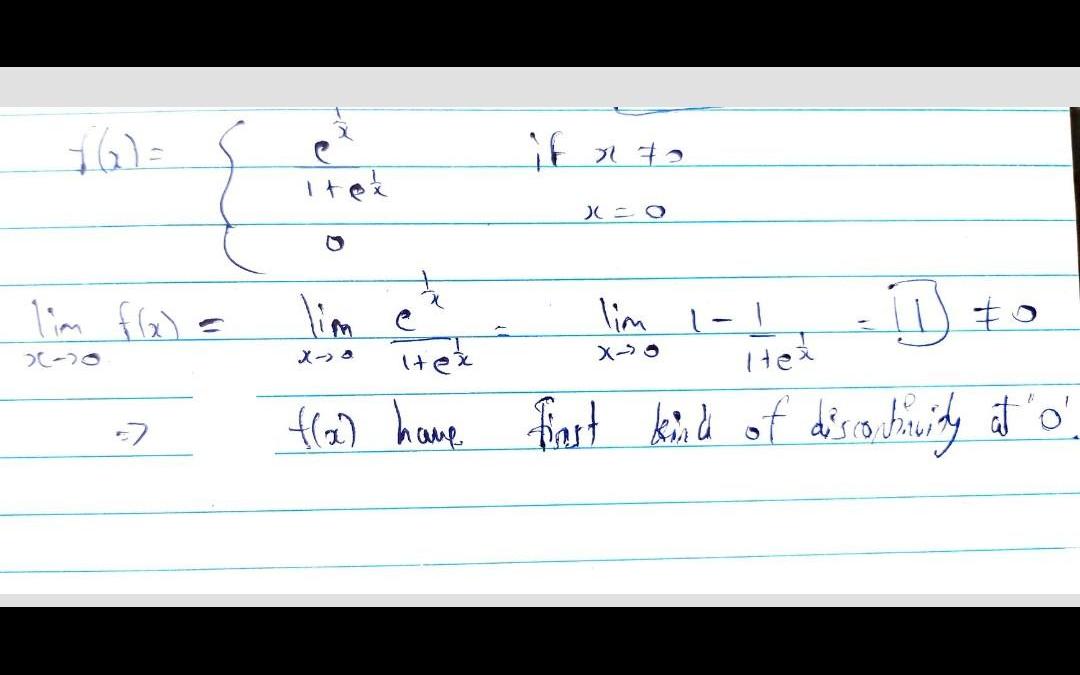 f(x) = { e^{1/x} / (1 + e^{1/x}) if x ≠ 0
0 x = 0
lim x→0 f(x) = lim x→0 e^{1/x} / (1 + e^{1/x}) = lim x→0 1 - 1 / (1 + e^{1/x}) = 1 ≠ 0
⇒ f(x) have first kind of discontinuity at '0'.